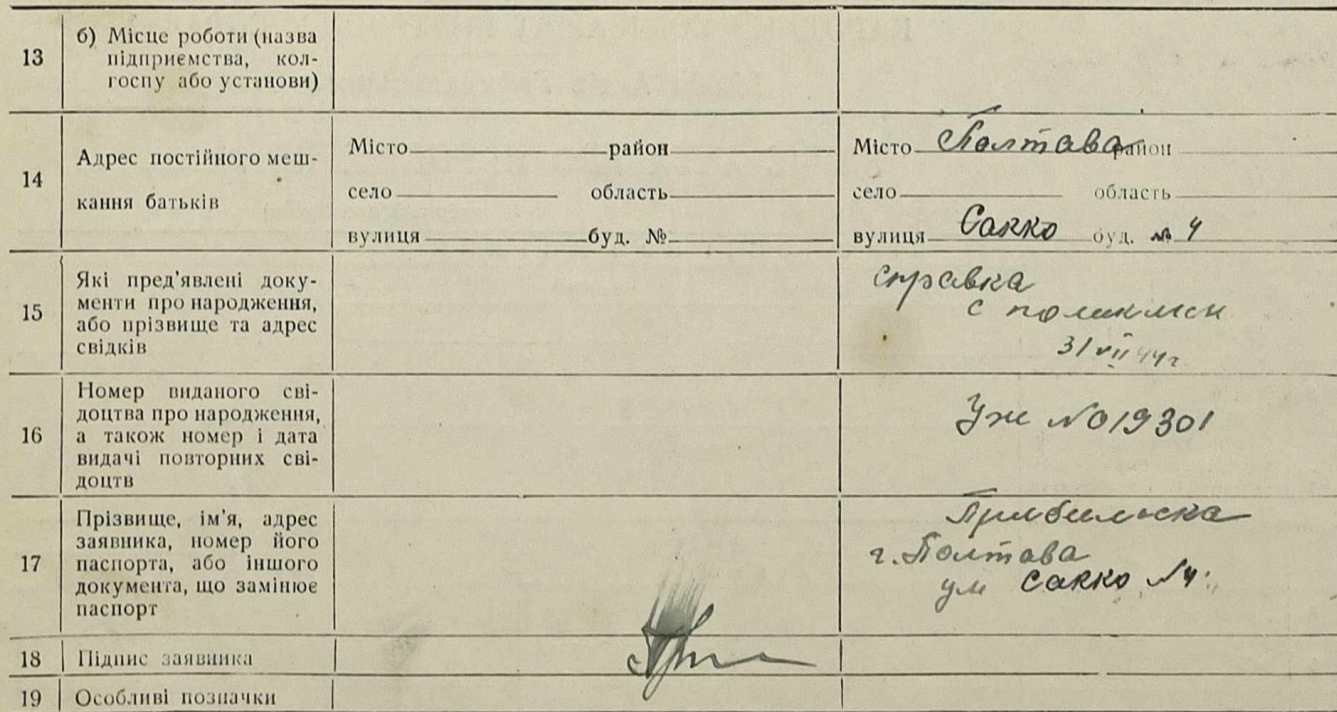 13
б) Місце роботи (назва
підприємства, кол-
госпу або установи)
14
Адрес постійного меш-
кання батьків
Місто район
село область
вулиця буд. №
Місто Полтава район
село область
вулиця Сакко буд. № 4
15
Які пред'явлені доку-
менти про народження,
або прізвище та адрес
свідків
справка
с
31 VII 44г
16
Номер виданого сві-
доцтва про народження,
а також номер і дата
видачі повторних сві-
доцтв
№ 019301
17
Прізвище, ім'я, адрес
заявника, номер його
паспорта, або іншого
документа, що замінює
паспорт
г. Полтава
ул Сакко № 4
18
Підпис заявника
19
Особливі позначки